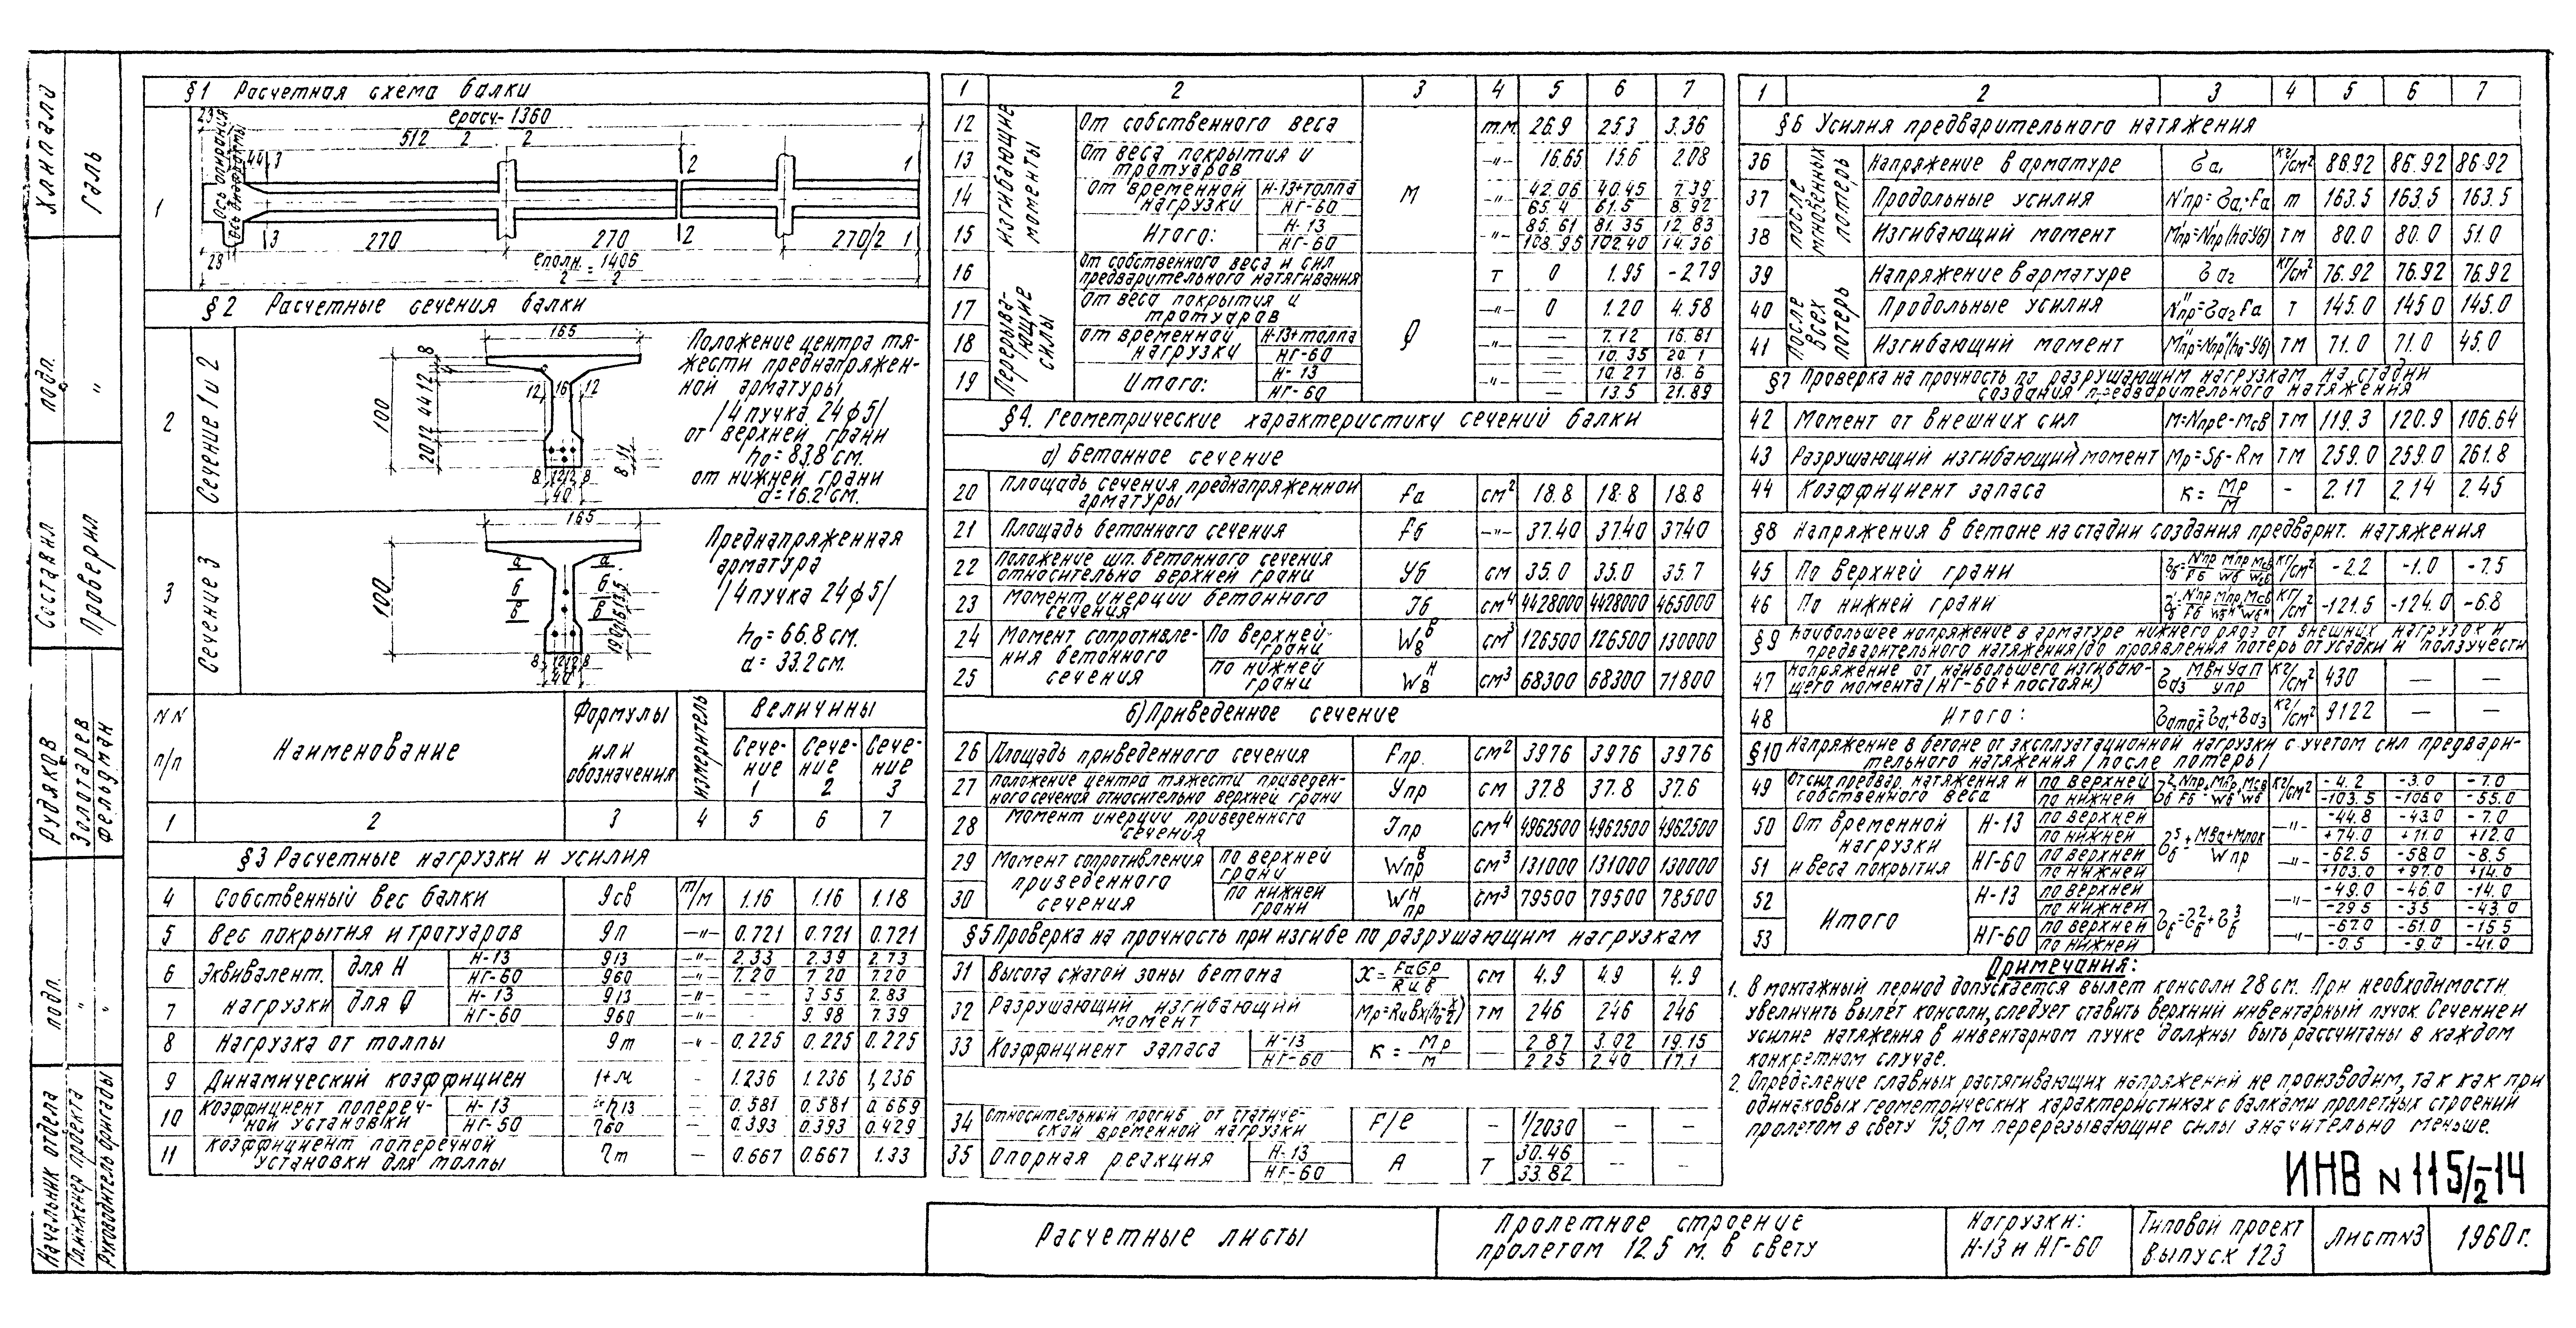 §1 Расчетная схема балки
ерасч-1360
2
512
2
23
Ось опирания
Ось диафрагмы
44
3
2
1
1
3
270
270
2
270/2
1
28
еполн. = 1406
2 2
§2 Расчетные сечения балки
2
Сечение 1 и 2
165
100
8
20 12 44 12
12 16 12
8 12 12 8
40
8 11
Положение центра тя-
жести преднапряжен-
ной арматуры
/4 пучка 24ф5/
от верхней грани
h₀=83.8 см.
от нижней грани
а=16.2 см.
3
Сечение 3
165
100
а а
б б
в в
8 12 12 8
40
Преднапряженная
арматура
/4 пучка 24ф5/
h₀=66.8 см.
а=33.2 см.
NN п/п
Наименование
Формулы или обозначения
Измеритель
Величины
Сече-ние 1
Сече-ние 2
Сече-ние 3
1 2 3 4 5 6 7
§3 Расчетные нагрузки и усилия
4 Собственный вес балки qсв т/м 1.16 1.16 1.18
5 Вес покрытия и тротуаров qп —"— 0.721 0.721 0.721
6 Эквивалент. для Н Н-13 q13 —"— 2.33 2.39 2.73
НГ-60 q60 —"— 7.20 7.20 7.20
7 нагрузки для Q Н-13 q13 —"— -- 3.55 2.83
НГ-60 q60 —"— - 9.98 7.39
8 Нагрузка от толпы qт —"— 0.225 0.225 0.225
9 Динамический коэффициен 1+м - 1.236 1.236 1,236
10 Коэффициент попереч-ной установки Н-13 η13 - 0.581 0.581 0.669
НГ-60 η60 - 0.393 0.393 0.429
11 Коэффициент поперечной
установки для толпы ηт — 0.667 0.667 1.33
1 2 3 4 5 6 7
Изгибающие моменты
12 От собственного веса т.м. 26.9 25.3 3.36
13 От веса покрытия и
тротуаров —"— 16.65 15.6 2.08
14 От временной нагрузки Н-13+толпа М —"— 42.06 40.45 7.39
НГ-60 65.4 61.5 8.92
15 Итого: Н-13 —"— 85.61 81.35 12.83
НГ-60 108.95 102.40 14.36
Перерыва-ющие силы
16 От собственного веса и сил
предварительного натягивания т 0 1.95 -2.79
17 От веса покрытия и
тротуаров —"— 0 1.20 4.58
18 от временной нагрузки Н-13+толпа Q —"— — 7.12 16.81
НГ-60 — 10.35 20.1
19 Итого: Н-13 —"— — 10.27 18.6
НГ-60 — 13.5 21.89
§4. Геометрические характеристику сечений балки
а) Бетонное сечение
20 Площадь сечения преднапряженной
арматуры Fа см² 18.8 18.8 18.8
21 Площадь бетонного сечения Fб —"— 37.40 3740 3740
22 Положение шп. бетонного сечения
относительно верхней грани Уб см 35.0 35.0 35.7
23 Момент инерции бетонного
сечения Jб см⁴ 4428000 4428000 465000
24 Момент сопротивле-ния бетонного сечения По верхней грани Wвᵇ см³ 126500 126500 130000
25 по нижней грани Wвᴴ см³ 68300 68300 71800
б) Приведенное сечение
26 Площадь приведенного сечения Fпр. см² 3976 3976 3976
27 Положение центра тяжести приведен-
ного сечения относительно верхней грани Упр см 37.8 37.8 37.6
28 Момент инерции приведенного
сечения Jпр см⁴ 4962500 4962500 4962500
29 Момент сопротивления приведенного сечения по верхней грани Wпрᴮ см³ 131000 131000 130000
30 по нижней грани Wпрᴴ см³ 79500 79500 78500
§5 Проверка на прочность при изгибе по разрушающим нагрузкам
31 Высота сжатой зоны бетона х=FаGр/Rив см 4.9 4.9 4.9
32 Разрушающий изгибающий
момент Мр=Rивх(h₀-х/2) тм 246 246 246
33 Коэффициент запаса Н-13 К=Мр/М — 2.87 3.02 19.15
НГ-60 2.25 2.40 17.1
34 Относительный прогиб от статиче-
ской временной нагрузки F/е — 1/2030 — —
35 Опорная реакция Н-13 А т 30.46 -- -
НГ-60 33.82
1 2 3 4 5 6 7
§6 Усилия предварительного натяжения
После мновенных потерь
36 Напряжение в арматуре ба₁ кг/см² 86.92 86.92 86.92
37 Продольные усилия N'пр=бa₁·Fа т 163.5 163.5 163.5
38 Изгибающий момент М'пр=N'пр(h₀-Уб) тм 80.0 80.0 51.0
После всех потерь
39 Напряжение в арматуре ба₂ кг/см² 76.92 76.92 76.92
40 Продольные усилия N"пр=ба₂Fа т 145.0 145.0 145.0
41 Изгибающий момент М"пр=N"пр(h₀-Уб) тм 71.0 71.0 45.0
§7 Проверка на прочность по разрушающим нагрузкам на стадии
создания предварительного натяжения
42 Момент от внешних сил М=Nпре-Мсв тм 119.3 120.9 106.64
43 Разрушающий изгибающий момент Мр=Sб·Rм тм 259.0 259.0 261.8
44 Коэффициент запаса К=Мр/М - 2.17 2.14 2.45
§8 Напряжения в бетоне на стадии создания предварит. натяжения
45 По верхней грани кг/см² -2.2 -1.0 -7.5
46 По нижней грани кг/см² -121.5 -124.0 -6.8
§9 Наибольшее напряжение в арматуре нижнего ряда от внешних нагрузок и
предварительного натяжения/до проявления потерь от усадки и ползучести
47 Напряжение от наибольшего изгибаю-
щего момента/НГ-60+постоян) кг/см² 430 — —
48 Итого: баmax=ба₁+ба₃ кг/см² 9122 — —
§10 Напряжение в бетоне от эксплуатационной нагрузки с учетом сил предвари-
тельного натяжения/после потеры/
49 От сил предвар. натяжения и собственного веса по верхней кг/см² -4.2 -3.0 -7.0
по нижней -103.5 -106.0 -55.0
50 От временной нагрузки и веса покрытия Н-13 по верхней —"— -44.8 -43.0 -7.0
по нижней +74.0 +71.0 +12.0
51 НГ-60 по верхней —"— -62.5 -58.0 -8.5
по нижней +103.0 +97.0 +14.0
52 Итого Н-13 по верхней —"— -49.0 -46.0 -14.0
по нижней -29.5 -35 -43.0
53 НГ-60 по верхней —"— -67.0 -61.0 -15.5
по нижней -0.5 -9.0 -41.0
Примечания:
1. В монтажный период допускается вылет консоли 28 см. При необходимости
увеличить вылет консоли, следует ставить верхний инвентарный пучок. Сечение и
усилие натяжения в инвентарном пучке должны быть рассчитаны в каждом
конкретном случае.
2. Определение главных растягивающих напряжений не производим, так как при
одинаковых геометрических характеристиках с балками пролетных строений
пролетом в свету 15,0м перерезывающие силы значительно меньше.
ИНВ N 115/2-14
Расчетные листы
Пролетное строение
пролетом 12.5 м. в свету
Нагрузки:
Н-13 и НГ-60
Типовой проект
Выпуск 123
Лист N3
1960г.
Начальник отдела подп. Рудяков
Гл. инженер проекта " Золотарев
Руководитель бригады " Фельдман
Составил подп. Хлипали
Проверил " Галь